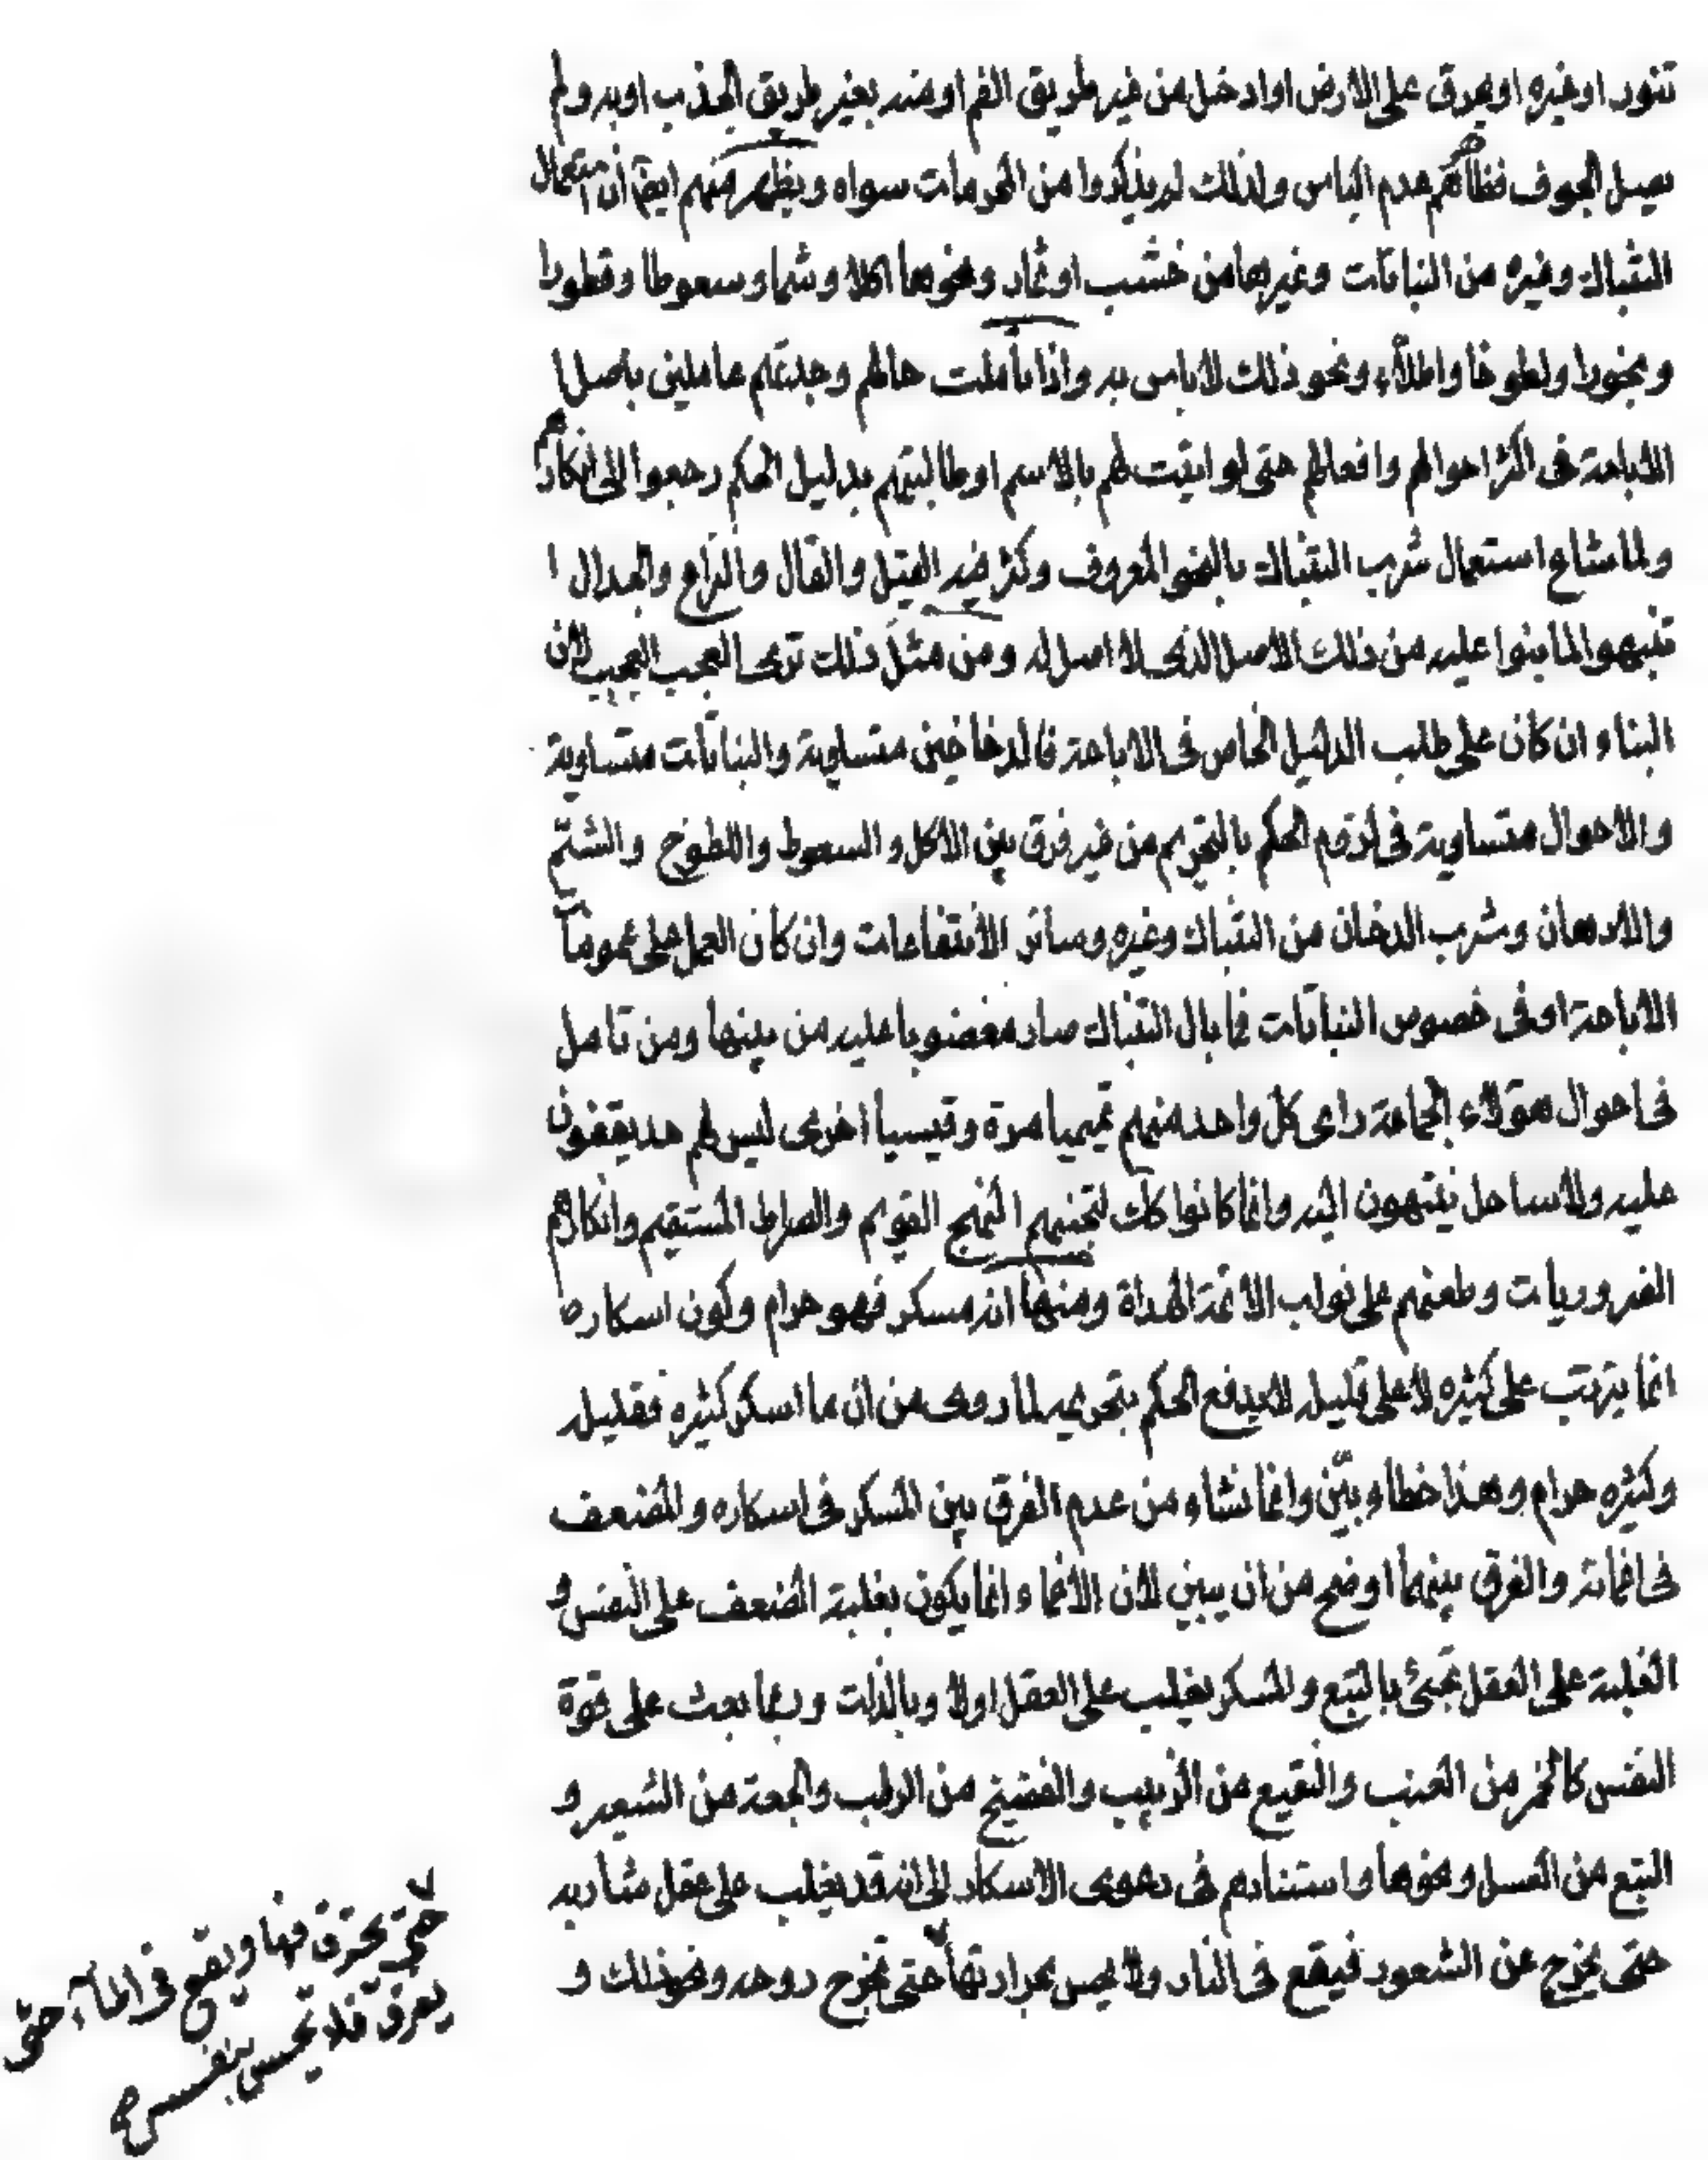 تنور او غيره او يحرق على الارض او ادخل من غير طريق الفم او منه بغير طريق الجذب او به ولم
يصل الجوف فظاهرهم عدم الباس ولذلك لم يذكروا من المحرمات سواه ويظهر منهم ايضا ان استعمال
التنباك وغيره من النباتات وغيرها من خشب او ثمار ونحوها اكلا وشما وسعوطا وقطورا
وبخورا ولطوخا واطلاء ونحو ذلك لا باس به واذا تاملت حالهم وجدتهم عاملين باصل
الاباحة في اكثر احوالهم وافعالهم حتى لو اتيت لهم بالاسم او طالبتهم بدليل الحكم رجعوا الى انكارهم
ولما شاع استعمال شرب التنباك بالنحو المعروف وكثر فيه القيل والقال والنزاع والجدال
تنبهوا لما بنوا عليه من ذلك الاصل الذي لا اصل له ومن مثل ذلك ترى العجب العجيب لان
البناء ان كان على طلب الدليل الخاص في الاباحة فالدخاخين متساوية والنباتات متساوية
والاحوال متساوية في لزوم الحكم بالتحريم من غير فرق بين الاكل والسعوط واللطوخ والشم
والادهان وشرب الدخان من التنباك وغيره وسائر الانتفاعات وان كان العمل على عموما
الاباحة او في خصوص النباتات فما بال التنباك صار مغضوبا عليه من بينها ومن تامل
في احوال هؤلاء الجماعة راى كل واحد منهم تميميا مرة وقيسيا اخرى ليس لهم حد يقفون
عليه ولا ساحل ينتهون اليه وانما كانوا كك لتجنبهم النهج القويم والصراط المستقيم وانكارهم
الضروريات وطعنهم على نواب الائمة الهداة ومنها انه مسكر فهو حرام وكون اسكاره
انما يترتب على كثيره لا على قليله لا يدفع الحكم بتحريمه لما روى من ان ما اسكر كثيره فقليله
وكثيره حرام وهذا خطاء بين وانما نشاء من عدم الفرق بين المسكر في اسكاره والمضعف
في اغمائه والفرق بينهما اوضح من ان يبين لان الاغماء انما يكون بغلبة الضعف على النفس و
الغلبة على العقل تجئ بالتبع والمسكر يغلب على العقل اولا وبالذات وربما بعث على قوة
النفس كالخمر من العنب والنقيع من الزبيب والفضيخ من الرطب والجعة من الشعير و
البتع من العسل ونحوها واستنادهم في دعوى الاسكار الى انه قد يغلب على عقل شاربه
حتى يخرج عن الشعور فيقع في النار ولا يحس بحرارتها حتى تخرج روحه ونحو ذلك و
حتى يحترق فيها ويقع في الماء حتى
يغرق فلا تحس بنفسه